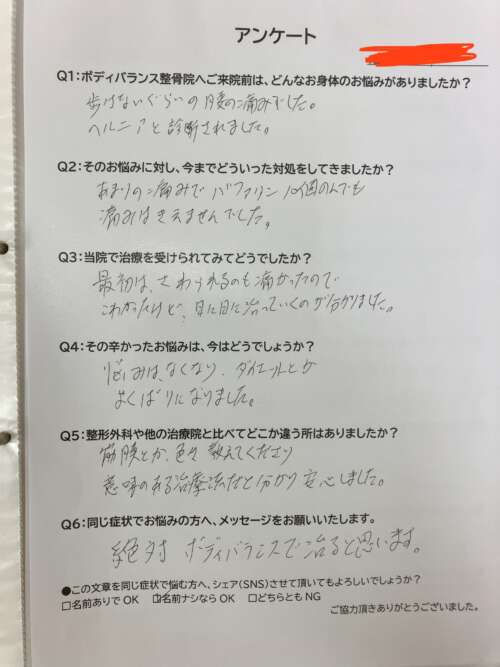 アンケート
Q1：ボディバランス整骨院へご来院前は、どんなお身体のお悩みがありましたか？
歩けないぐらいの腰の痛みでした。
ヘルニアと診断されました。
Q2：そのお悩みに対し、今までどういった対処をしてきましたか？
あまりの痛みでバファリン10個のんでも
痛みはきえませんでした。
Q3：当院で治療を受けられてみてどうでしたか？
最初は、さわられるのも痛かったので
こわかったけど、日に日に治っていくのが分かりました。
Q4：その辛かったお悩みは、今はどうでしょうか？
悩みは、なくなり、ダイエットとか
よくばりになりました。
Q5：整形外科や他の治療院と比べてどこか違う所はありましたか？
筋膜とか、色々教えてくださり
意味のある治療法だと分かり安心しました。
Q6：同じ症状でお悩みの方へ、メッセージをお願いいたします。
絶対ボディバランスで治ると思います。
●この文章を同じ症状で悩む方へ、シェア(SNS)させて頂いてもよろしいでしょうか？
□名前ありでOK ☑名前ナシならOK □どちらともNG
ご協力頂きありがとうございました。